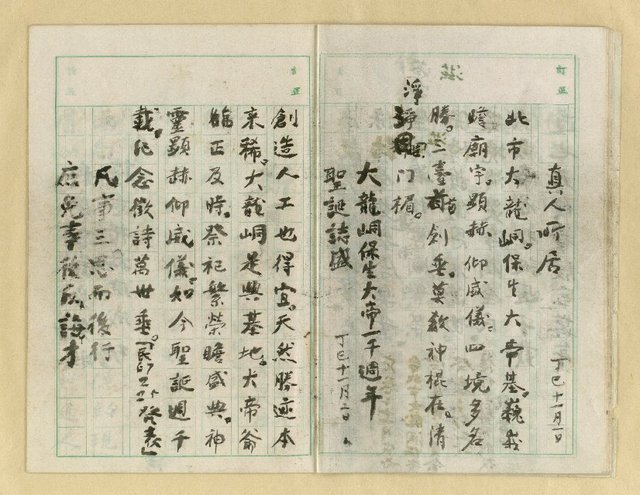 真人所居
丁巳十一月一日
北市大龍峒。保生大帝基。巍峩
瞻廟宇。顯赫仰威儀。四境多名
勝。三臺首劍垂。莫教神棍在。清
淨
淨 門楣。
大龍峒保生大帝一千週年
聖誕詩盛
丁巳十一月二日
創造人工也得宜。天然勝迹本
來稀。大龍峒是興基地。大帝爺
臨正及時。祭祀繁榮瞻盛典。神
靈顯赫仰威儀。如今聖誕週千
載。紀念徵詩萬世垂。「民67.2.25發表」
凡事三思而後行
庶免事後反悔才